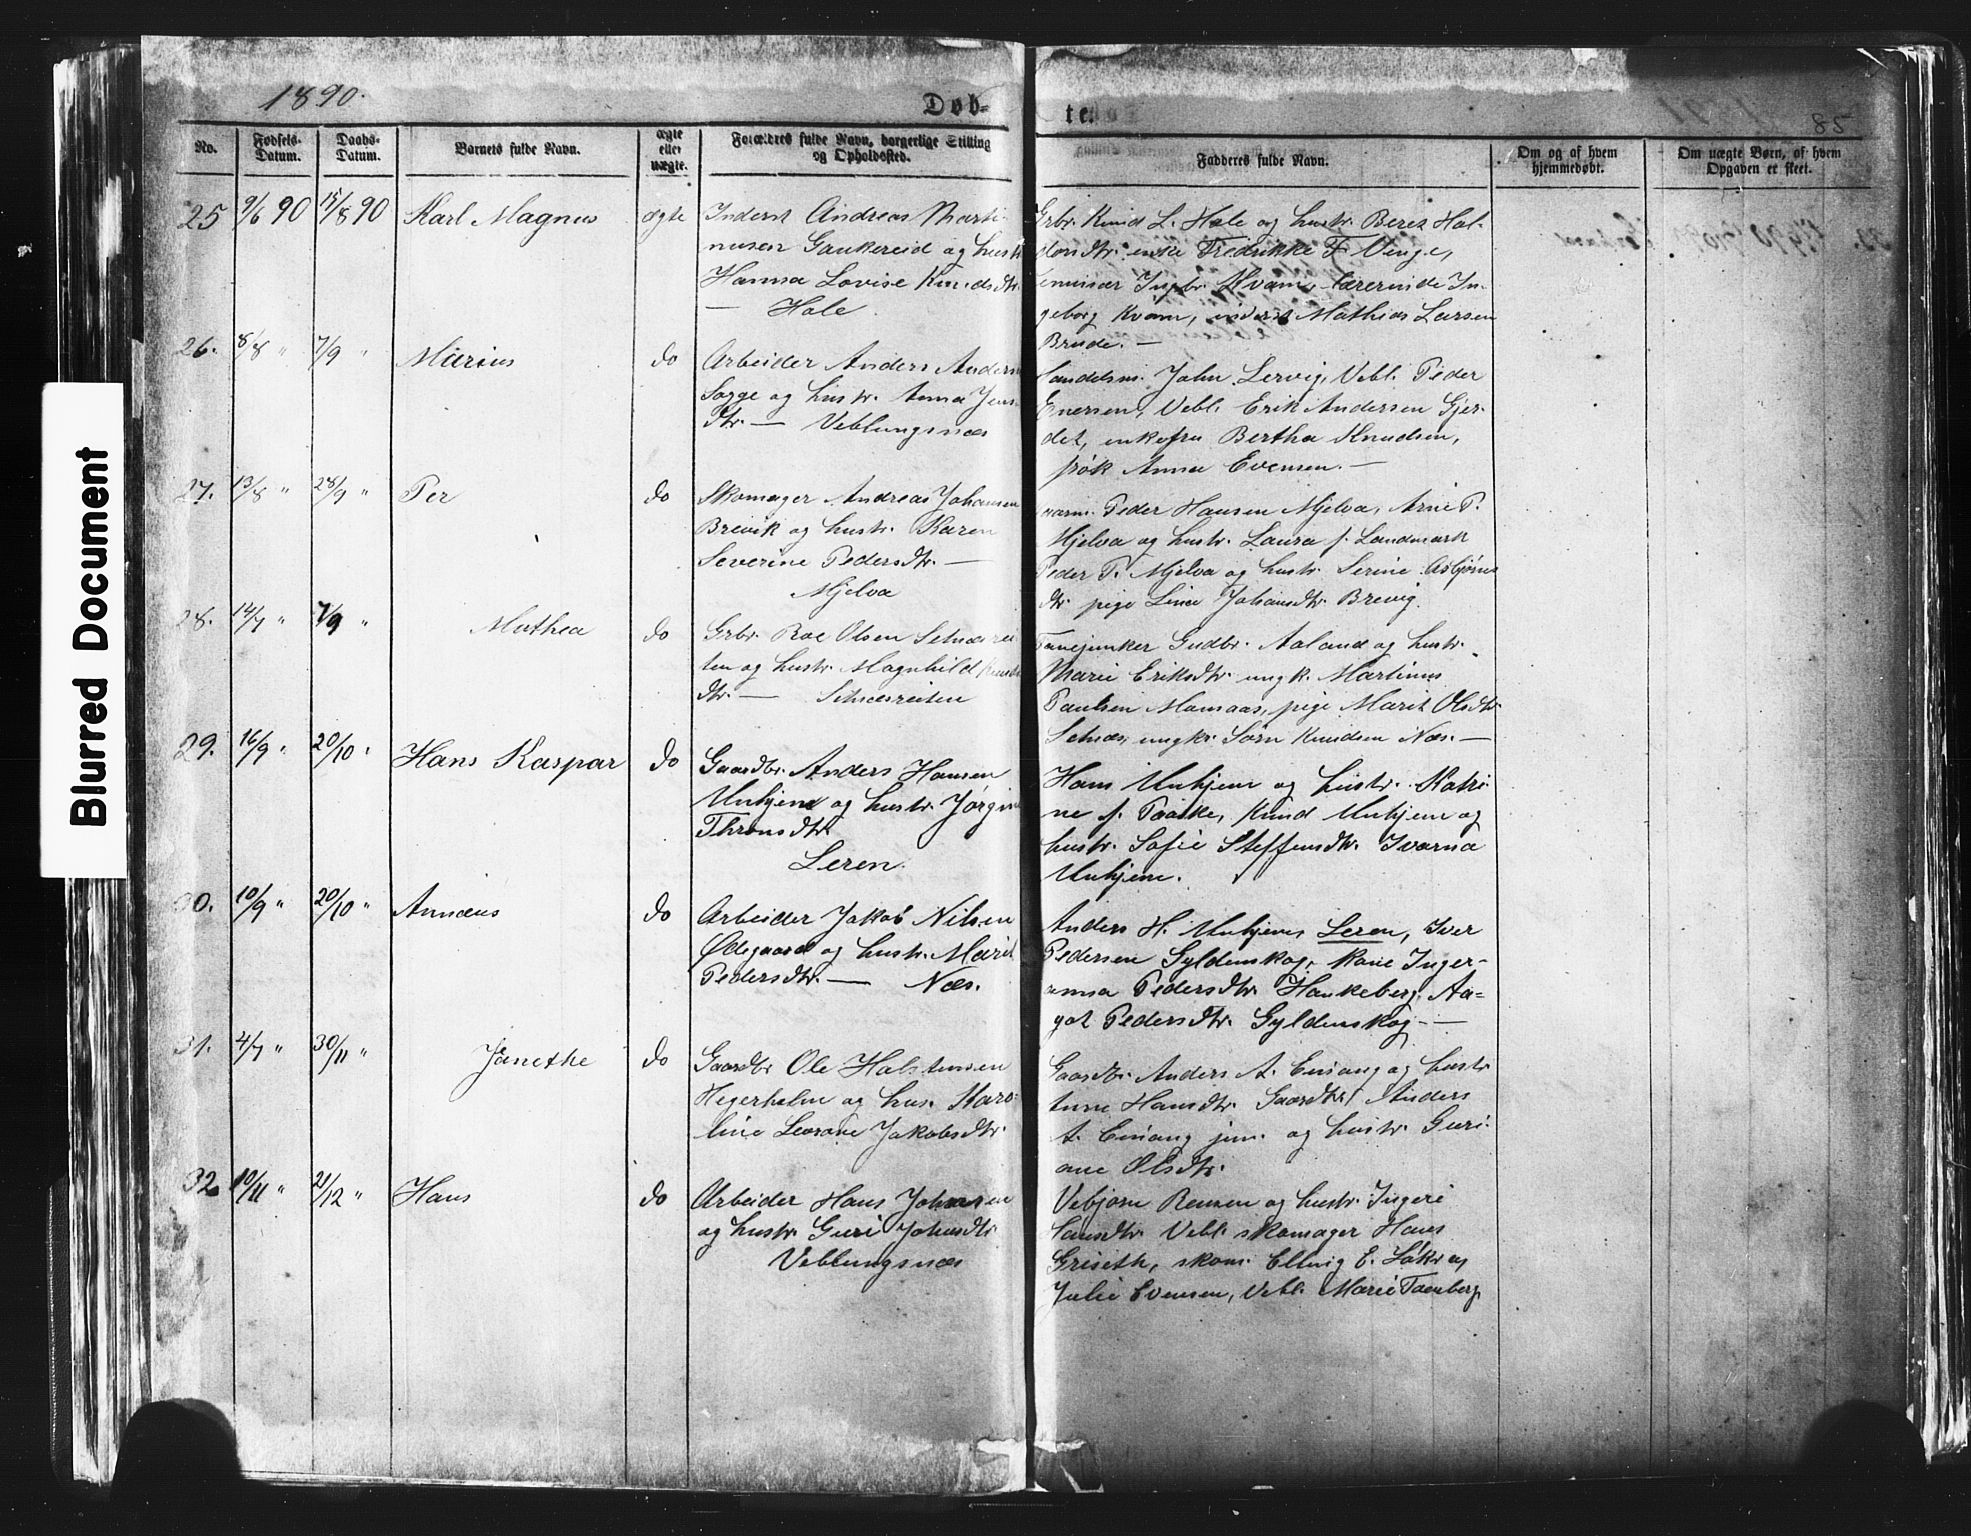 Blurred Document
1890.
Døb-
te.
85
No.
Fødsels-
Datum.
Daabs-
Datum.
Barnets fulde Navn.
ægte
eller
uægte.
Forældres fulde Navn, borgerlige Stilling
og Opholdssted.
Fadderes fulde Navn.
Om og af hvem
hjemmedøbt.
Om uægte Børn, af hvem
Opgaven er skeet.
25 9/6 90 15/8 90 Karl Magnus ægte
Inderst Andreas Marti-
nusen Gaukereid og hustr
Hanna Lovise Knudsdtr.
— Hole.
Grbr. Knud L. Hole og hustr. Beret Hal-
dorsdtr. enke Fredrikke F. Venge,
Ingbr. Kvam, lærerinde In-
geborg Kvam, inderst Mathias Larsen
Brude. —
26. 8/8 " 7/9 " Marius do
Arbeider Anders Anders
Sogge og hustr. Anna Jens
dtr. — Veblungsnæs
Landhm. John Lervig, Vebl. Peder
Enersen, Vebl. Erik Andersen Gjer-
det, enkefru Bertha Knudsen,
frøk Anna Evensen. —
27. 13/8 " 28/9 " Per do
Skomager Andreas Johansen
Brevik og hustr. Karen
Severine Pedersdtr. —
Mjelva
Peder Hansen Mjelva, Arne P.
Mjelva og hustr. Laura f. Landmark
Peder P. Mjelva og hustr. Serine Asbjørns
dtr. pige Lina Johansdtr. Brevig.
28. 14/7 " 7/9 " Mathea do
Grbr. Roe Olsen Setnesrei
ten og hustr. Magnhild Knuds
dtr. — Setnesreiten
Fanejunker Gudbr. Aaland og hustr.
Marie Eriksdtr. ungk. Martinus
Paulsen Monsaas, pige Marit Olsdtr.
Setnæs, ungkr. Sørn Knudsen Næs. —
29. 16/9 " 20/10 " Hans Kaspar do
Gaardbr. Anders Hansen
Unhjem og hustr. Jørgin
Thronsdtr.
Leren.
Hans Unhjem og hustr. Katri-
ne f. Paaske, Knud Unhjem og
hustr. Sofie Steffensdtr. Ivarna
Unhjem.
30. 10/9 " 20/10 " Annæus do
Arbeider Jakob Nilsen
Ødegaard og hustr. Marit
Pedersdtr. — Næs.
Anders H. Unhjem, Leren, Iver
Pedersen Gyldenskog, kone Inger-
anna Pedersdtr. Haukeberg, Aa-
got Pedersdtr. Gyldenskog —
31. 4/7 " 30/11 " Janethe do
Gaardbr Ole Halstensen
Hegerholm og hus. Karo-
line Leorane Jakobsdtr.
Gaardbr. Anders A. Ensang og hustr
Hansdtr. Gaardbr. Anders
A. Ensang jun. og hustr. Guri-
ane Olsdtr.
32 10/11 " 21/12 " Hans do
Arbeider Hans Johnsen
og hustr. Guri Johnsdtr.
Veblungsnæs
Vebjorn Bensen og hustr. Ingeri
Hansdtr. Vebl. skomager Hans
Griseth, skom. Ellvig E. Løkr og
Julie Evensen, Vebl. Marie Tomberg.